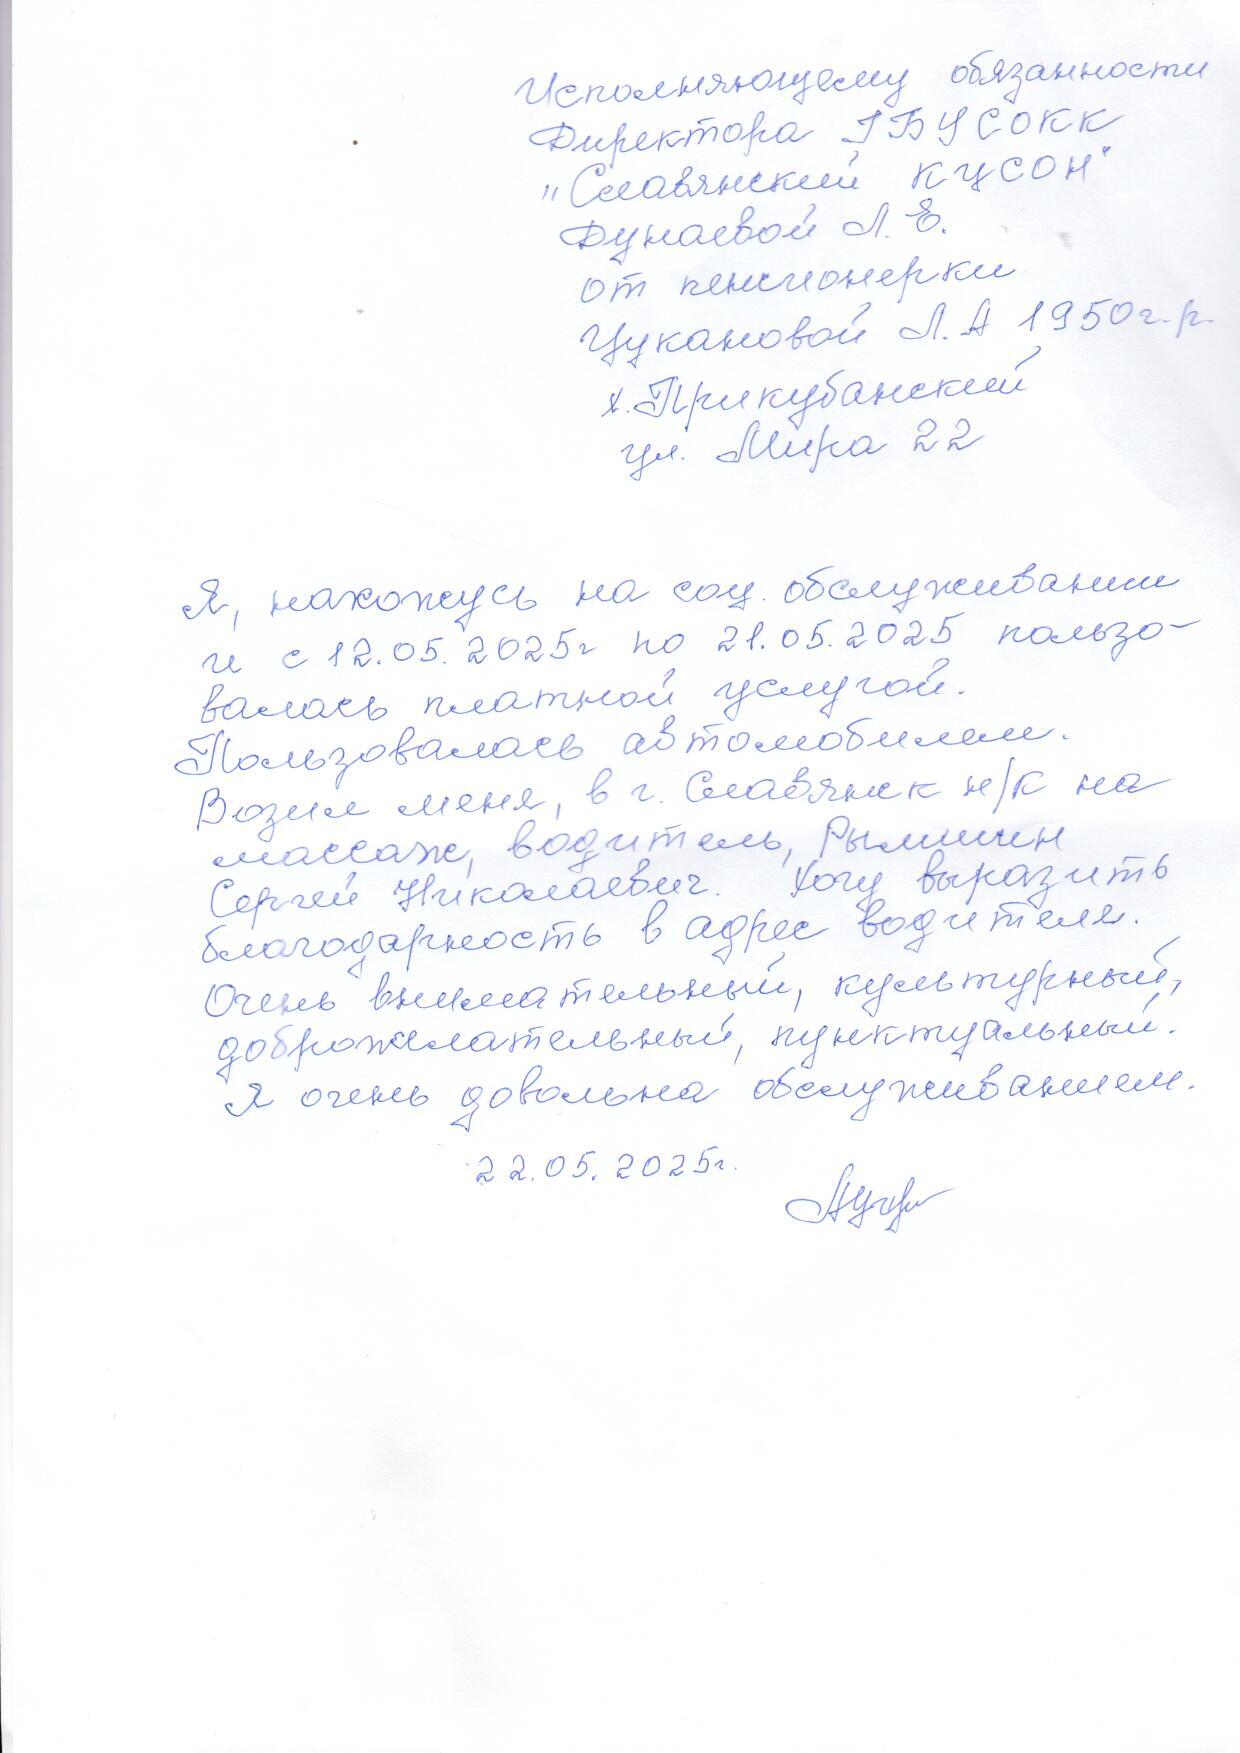 Исполняющему обязанности
Директора ГБУСОКК
"Славянский КЦСОН"
Дунаевой Л. Е.
от пенсионерки
Цукановой Л. А 1950г. р.
х. Прикубанский
ул. Мира 22
Я, нахожусь на соц. обслуживании
и с 12.05.2025г по 21.05.2025 пользо-
валась платной услугой.
Пользовалась автомобилем.
Возил меня, в г. Славянск н/К на
массаж, водитель,
Сергей Николаевич. Хочу выразить
благодарность в адрес водителя.
Очень внимательный, культурный,
доброжелательный, пунктуальный.
Я очень довольна обслуживанием.
22.05.2025г.